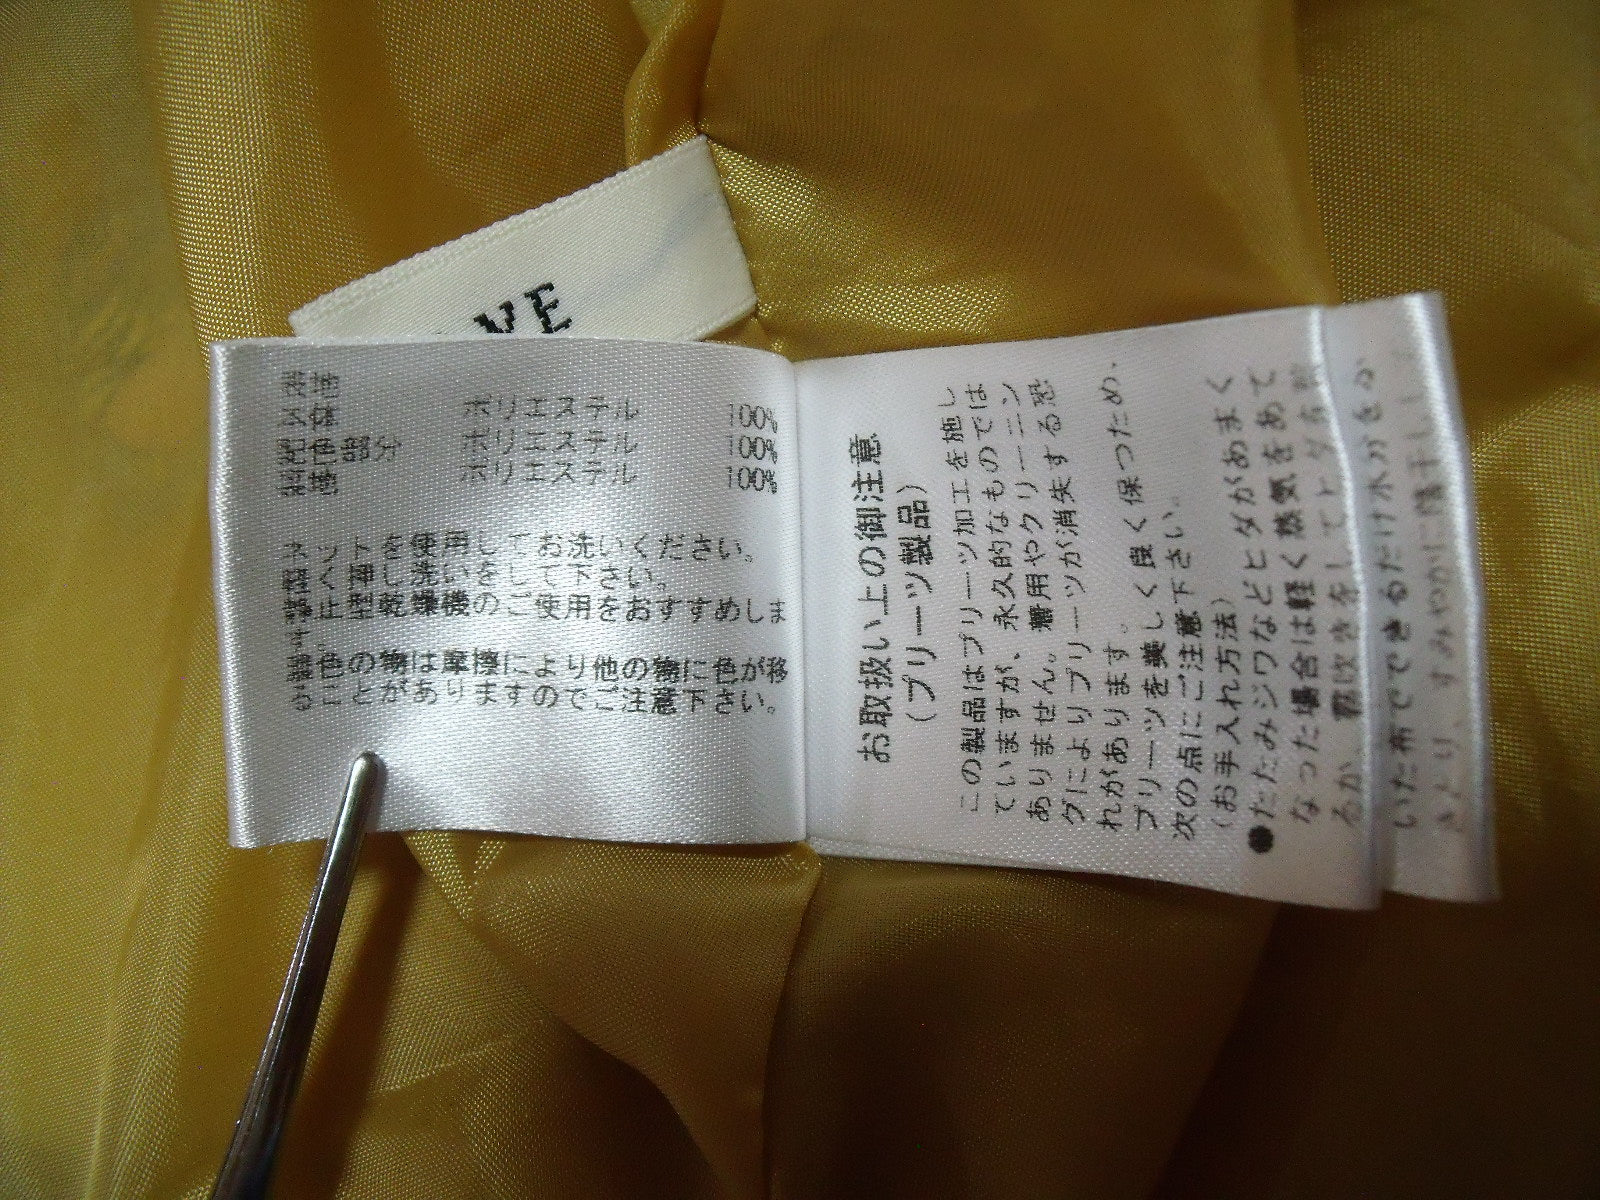 VE
表地
本体 ポリエステル 100%
配色部分 ポリエステル 100%
裏地 ポリエステル 100%
ネットを使用してお洗いください。
軽く押し洗いをして下さい。
静止型乾燥機のご使用をおすすめしま
す。
濃色の物は摩擦により他の物に色が移
ることがありますのでご注意下さい。
お取扱い上の御注意
(プリーツ製品)
この製品はプリーツ加工を施し
ていますが、永久的なものでは
ありません。着用やクリーニン
グによりプリーツが消失する恐
れがあります。
プリーツを美しく良く保つため、
次の点にご注意下さい。
(お手入れ方法)
●たたみジワなどヒダがあまく
なった場合は軽く蒸気をあて
るか、霧吹きをしてヒダを
いた布でできるだけ水分を
とり、すみやかに陰干し